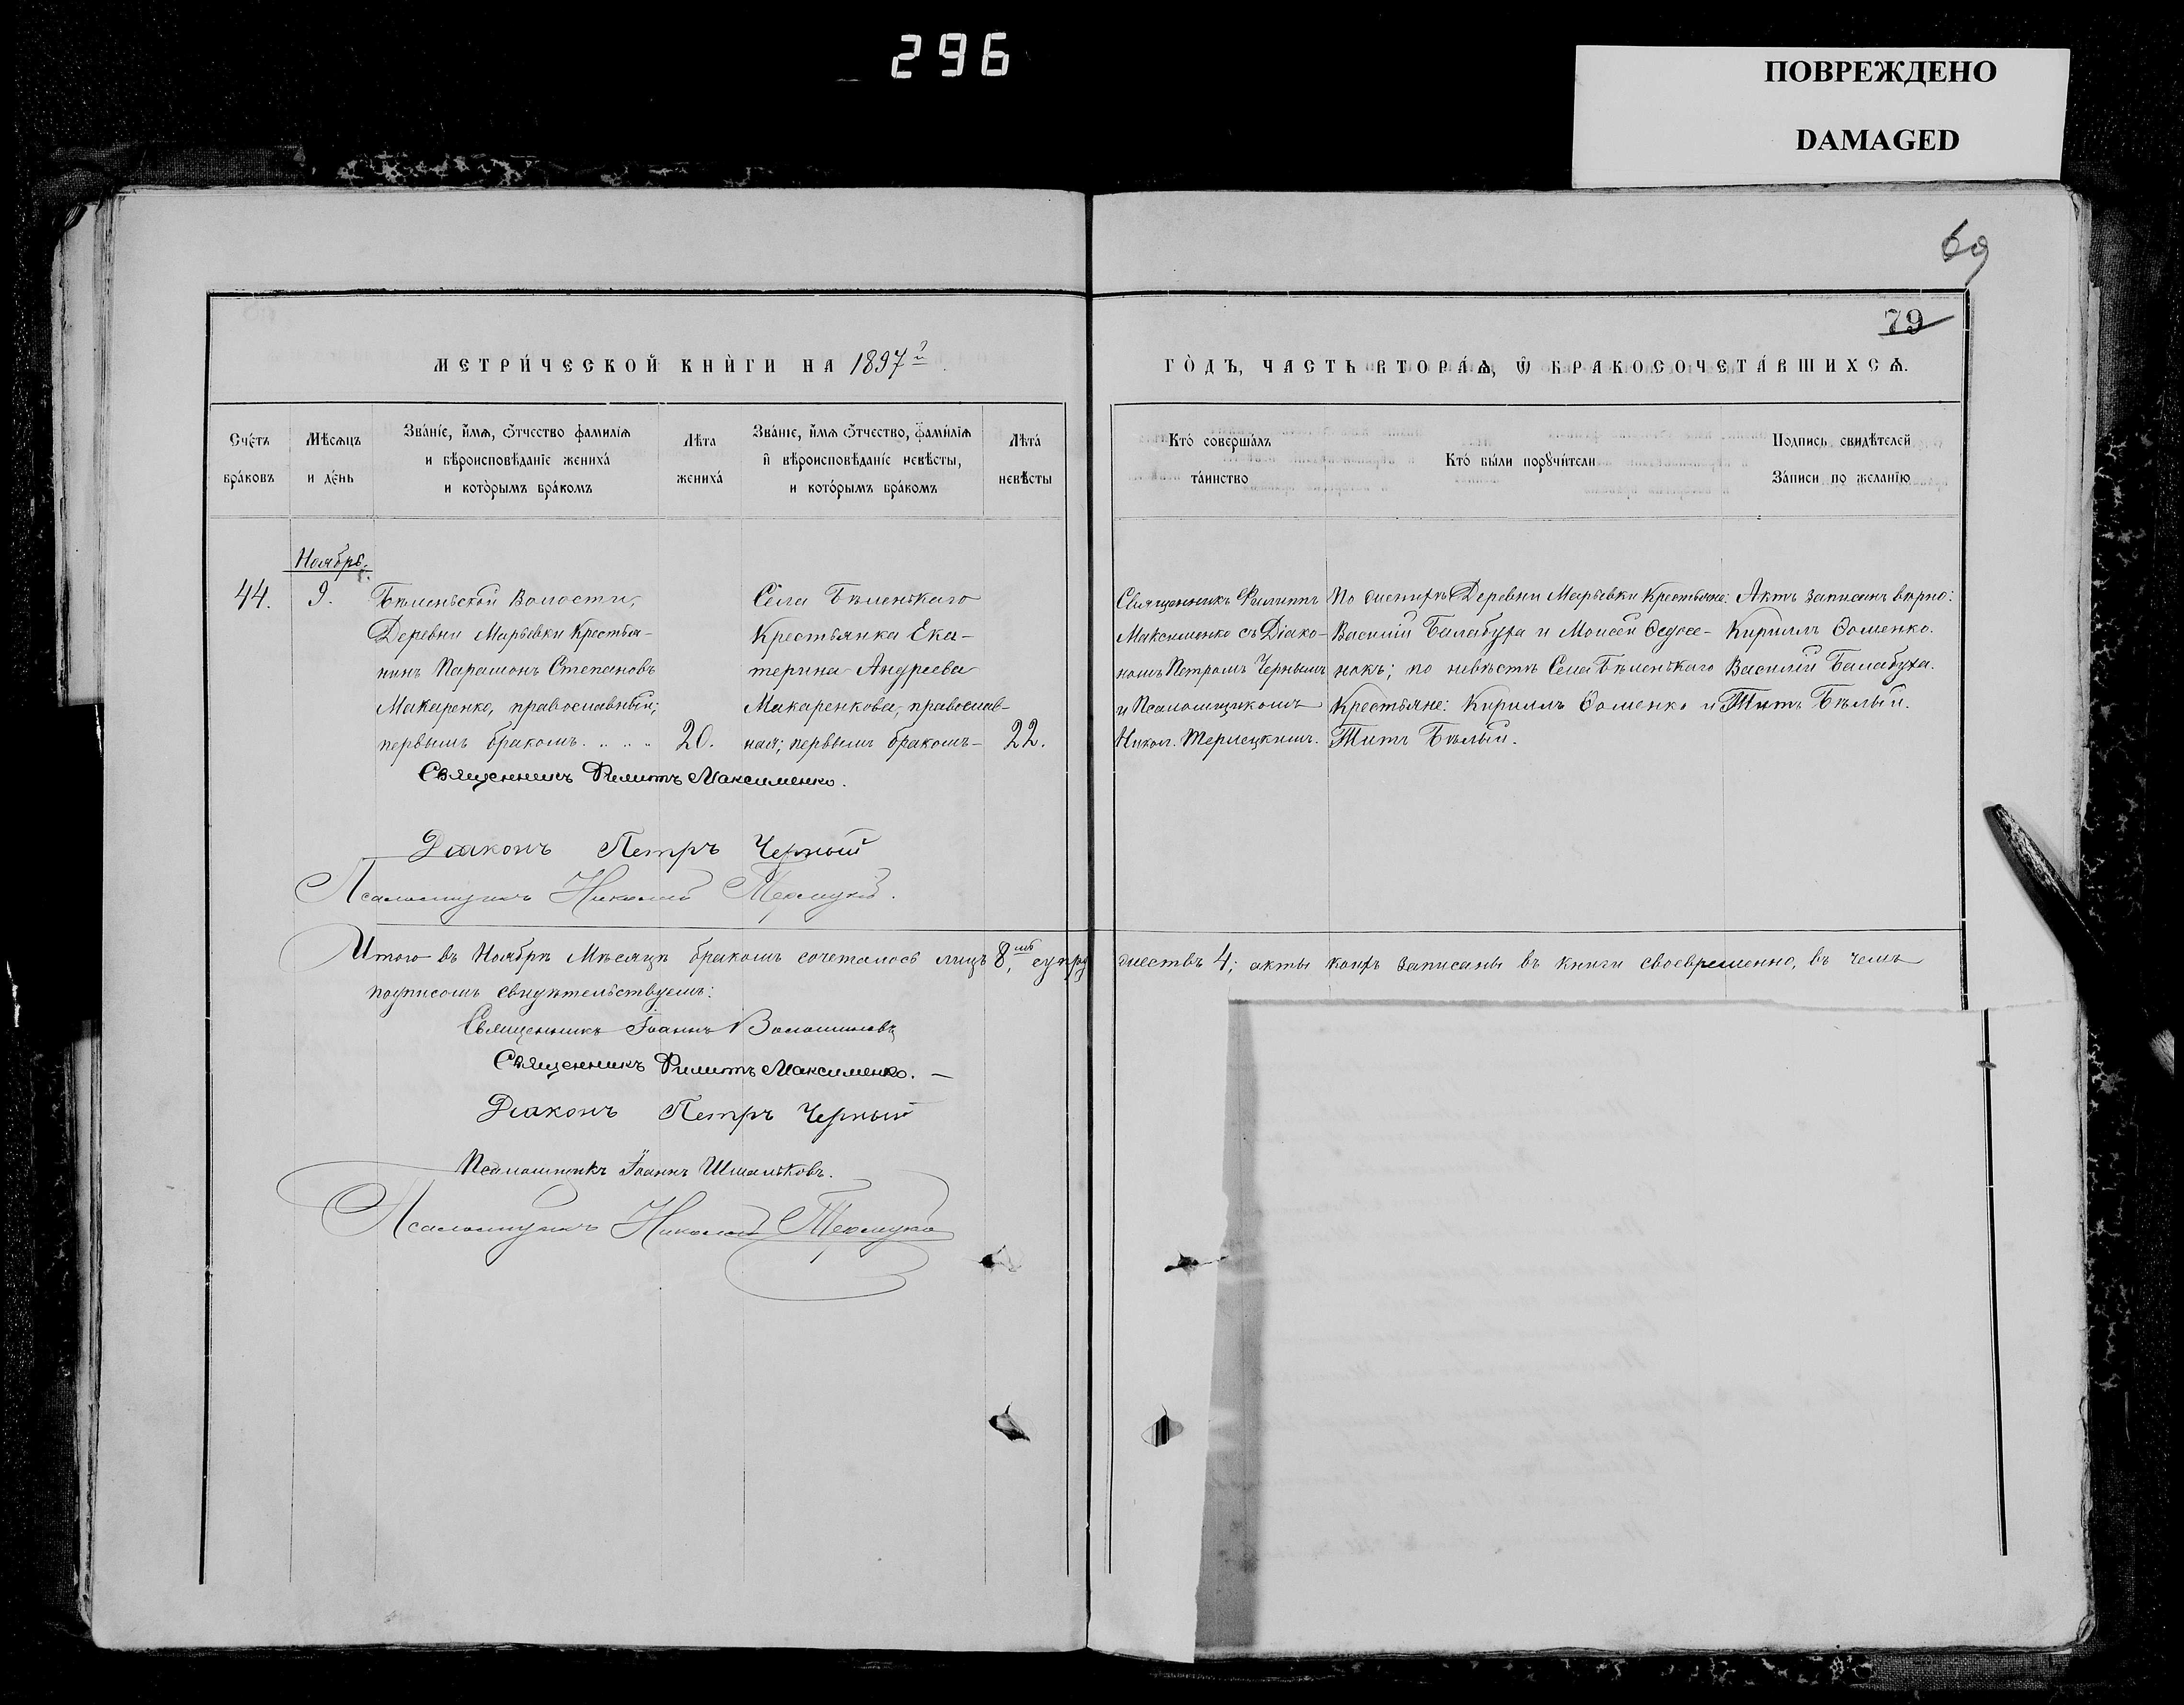 296
ПОВРЕЖДЕНО
DAMAGED
69
79
МЕТРИ́ЧЕСКОЙ КНИ́ГИ НА 1897й
ГО́ДЪ, ЧАСТЬ ВТОРА́Ѧ, Ѿ БРАКОСОЧЕТА́ВШИХСѦ.
Сче́тъ бра́ковъ
Мѣсѧцъ и де́нь
Зва́нїе, и́мѧ, ѻ́тчество фамилїѧ и вѣроисповѣ́данїе жениха́ и кото́рымъ бра́комъ
Лѣта жениха́
Зва́нїе, и́мѧ ѻ́тчество, фами́лїѧ и҆ вѣроисповѣ́данїе невѣ́сты, и кото́рымъ бра́комъ
Лѣта́ невѣ́сты
Кто́ соверша́лъ та́инство
Кто́ бы́ли порꙋчи́тели
Подпись свидѣ́телей За́писи по жела́нїю
Ноябрь.
44. 9. Бѣленьской Волости,
Деревни Марьевки Крестья-
нинъ Парамонъ Степановъ
Макаренко, православный;
первымъ бракомъ. . . . . 20.
Села Бѣленькаго
Крестьянка Ека-
терина Андреева
Макаренкова, православ-
ная; первымъ бракомъ- 22.
Священникъ Филиппъ
Максименко съ Діако-
номъ Петромъ Чернымъ
и Псаломщикомъ
Никол. Терлецкимъ.
По жениху Деревни Марьевки Крестьяне:
Василій Балабуха и Моисей Ѳедосе-
нокъ; по невѣстѣ Села Бѣленькаго
Крестьяне: Кириллъ Ѳоменко и
Титъ Бѣлый.
Актъ записанъ вѣрно:
Кириллъ Ѳоменко.
Василій Балабуха.
Титъ Бѣлый.
Священникъ Филиппъ Максименко.
Діаконъ Петръ Черный
Псаломщикъ Николай Терлецкій.
Итого въ Ноябрѣ Мѣсяцѣ бракомъ сочеталось лицъ 8, супружествъ 4; акты коихъ записаны въ книги своевременно, въ чемъ
подписомъ свидѣтельствуемъ:
Священникъ Іоаннъ Волошиновъ
Священникъ Филиппъ Максименко. —
Діаконъ Петръ Черный
Псаломщикъ Іоаннъ Шмальковъ.
Псаломщикъ Николай Терлецкій